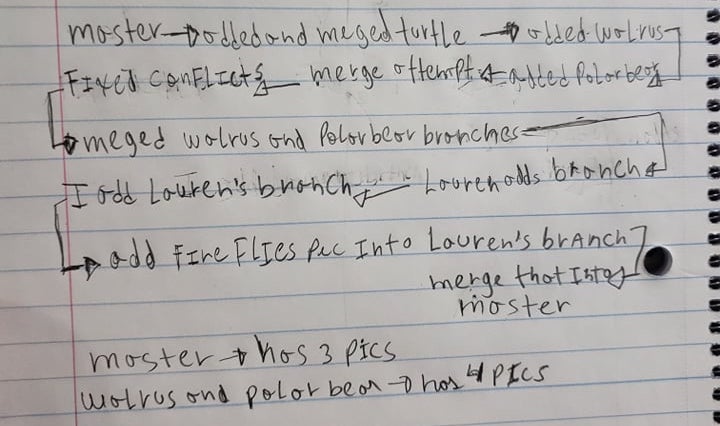 master → added and meged turtle → added walrus
Fixed conflicts ← merge attempt ← added Polar bear
→ meged walrus and Polar bear branches
I add Lauren's branch ← Lauren adds branch
→ add fire flies pic Into Lauren's brAnch
merge that Into
master
master → has 3 pics
walrus and polar bear → has 4 pics